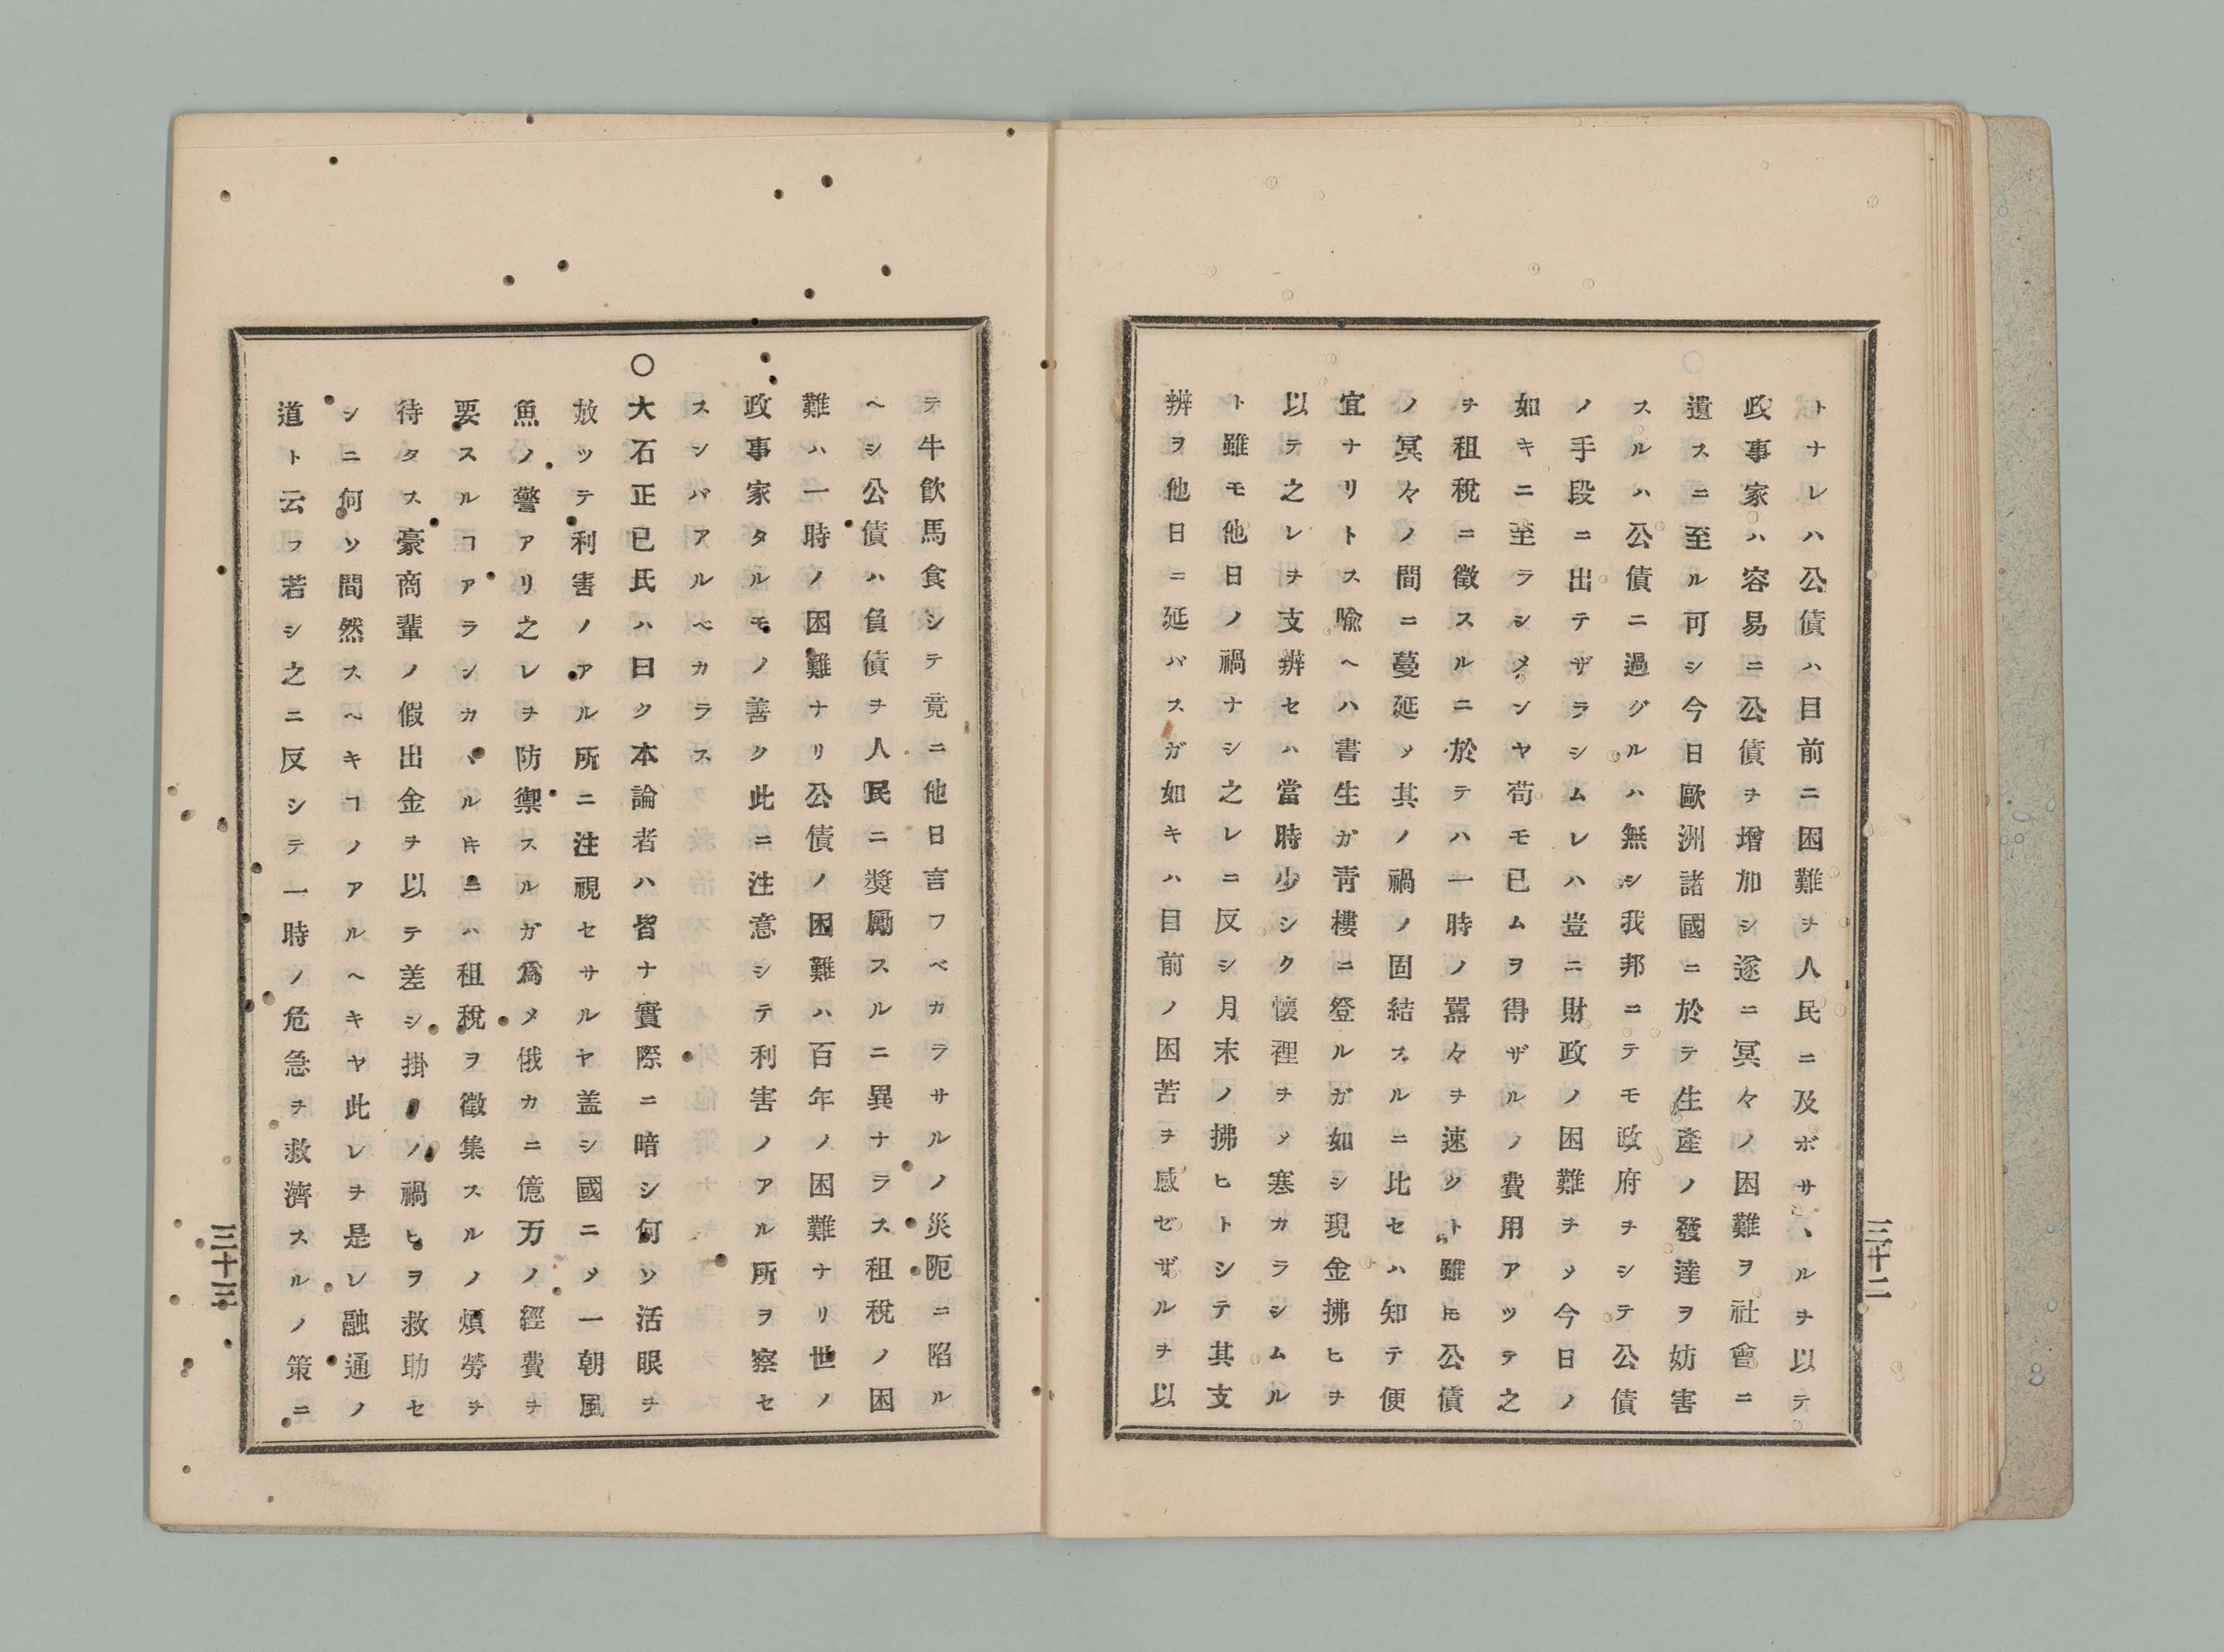 トナレハ公債ハ目前ニ困難ヲ人民ニ及ボサヽルヲ以テ
政事家ハ容易ニ公債ヲ増加シ遂ニ冥々ノ困難ヲ社會ニ
遺スニ至ル可シ今日歐洲諸國ニ於テ生產ノ發達ヲ妨害
スルハ公債ニ過グルハ無シ我邦ニテモ政府ヲシテ公債
ノ手段ニ出テザラシムレハ豈ニ財政ノ困難ヲ〆今日ノ
如キニ至ラシメンヤ苟モ已ムヲ得ザルノ費用アツテ之
ヲ租稅ニ徵スルニ於テハ一時ノ囂々ヲ速クト雖𪜈公債
ノ冥々ノ間ニ蔓延〆其ノ禍ノ固結スルニ比セハ知テ便
宜ナリトス喩ヘハ書生ガ靑樓ニ登ルガ如シ現金拂ヒヲ
以テ之レヲ支辨セハ當時少シク懷裡ヲ〆寒カラシムル
ト雖モ他日ノ禍ナシ之レニ反シ月末ノ拂ヒトシテ其支
辨ヲ他日ニ延バスガ如キハ目前ノ困苦ヲ感ゼザルヲ以
三十二
テ牛飮馬食シテ竟ニ他日言フベカラサルノ災阨ニ陷ル
ヘシ公債ハ負債ヲ人民ニ奬勵スルニ異ナラス租稅ノ困
難ハ一時ノ困難ナリ公債ノ困難ハ百年ノ困難ナリ世ノ
政事家タルモノ善ク此ニ注意シテ利害ノアル所ヲ察セ
スンバアルベカラス
○大石正已氏ハ曰ク本論者ハ皆ナ實際ニ暗シ何ソ活眼ヲ
放ツテ利害ノアル所ニ注視セサルヤ盖シ國ニ〆一朝風
魚ノ警アリ之レヲ防禦スルガ爲メ俄カニ億万ノ經費ヲ
要スルヿアランカ、ルキニハ租稅ヲ徵集スルノ煩勞ヲ
待タス豪商輩ノ假出金ヲ以テ差シ掛リノ禍ヒヲ救助セ
シニ何ソ間然スヘキヿノアルヘキヤ此レヲ是レ融通ノ
道ト云フ若シ之ニ反シテ一時ノ危急ヲ救濟スルノ策ニ
三十三